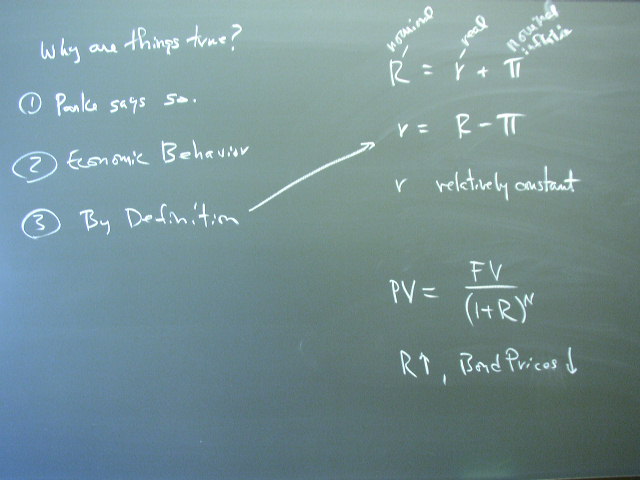 Why are things true?
① Parke says so.
② Economic Behavior
③ By Definition
nominal real nominal
R = r + π
r = R - π
r relatively constant
PV = FV / (1+R)^N
R↑, Bond Prices ↓